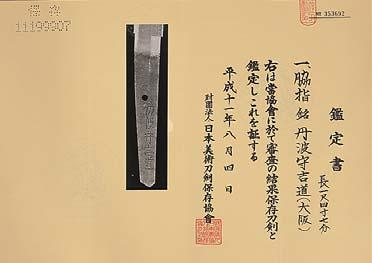 鑑定書
一、脇指 銘 丹波守吉道(大阪)
長一尺四寸七分
右は當協會に於て審査の結果保存刀剣と
鑑定しこれを証する
平成十一年八月四日
財團法人日本美術刀劍保存協會
保存
11199907
№ 353692